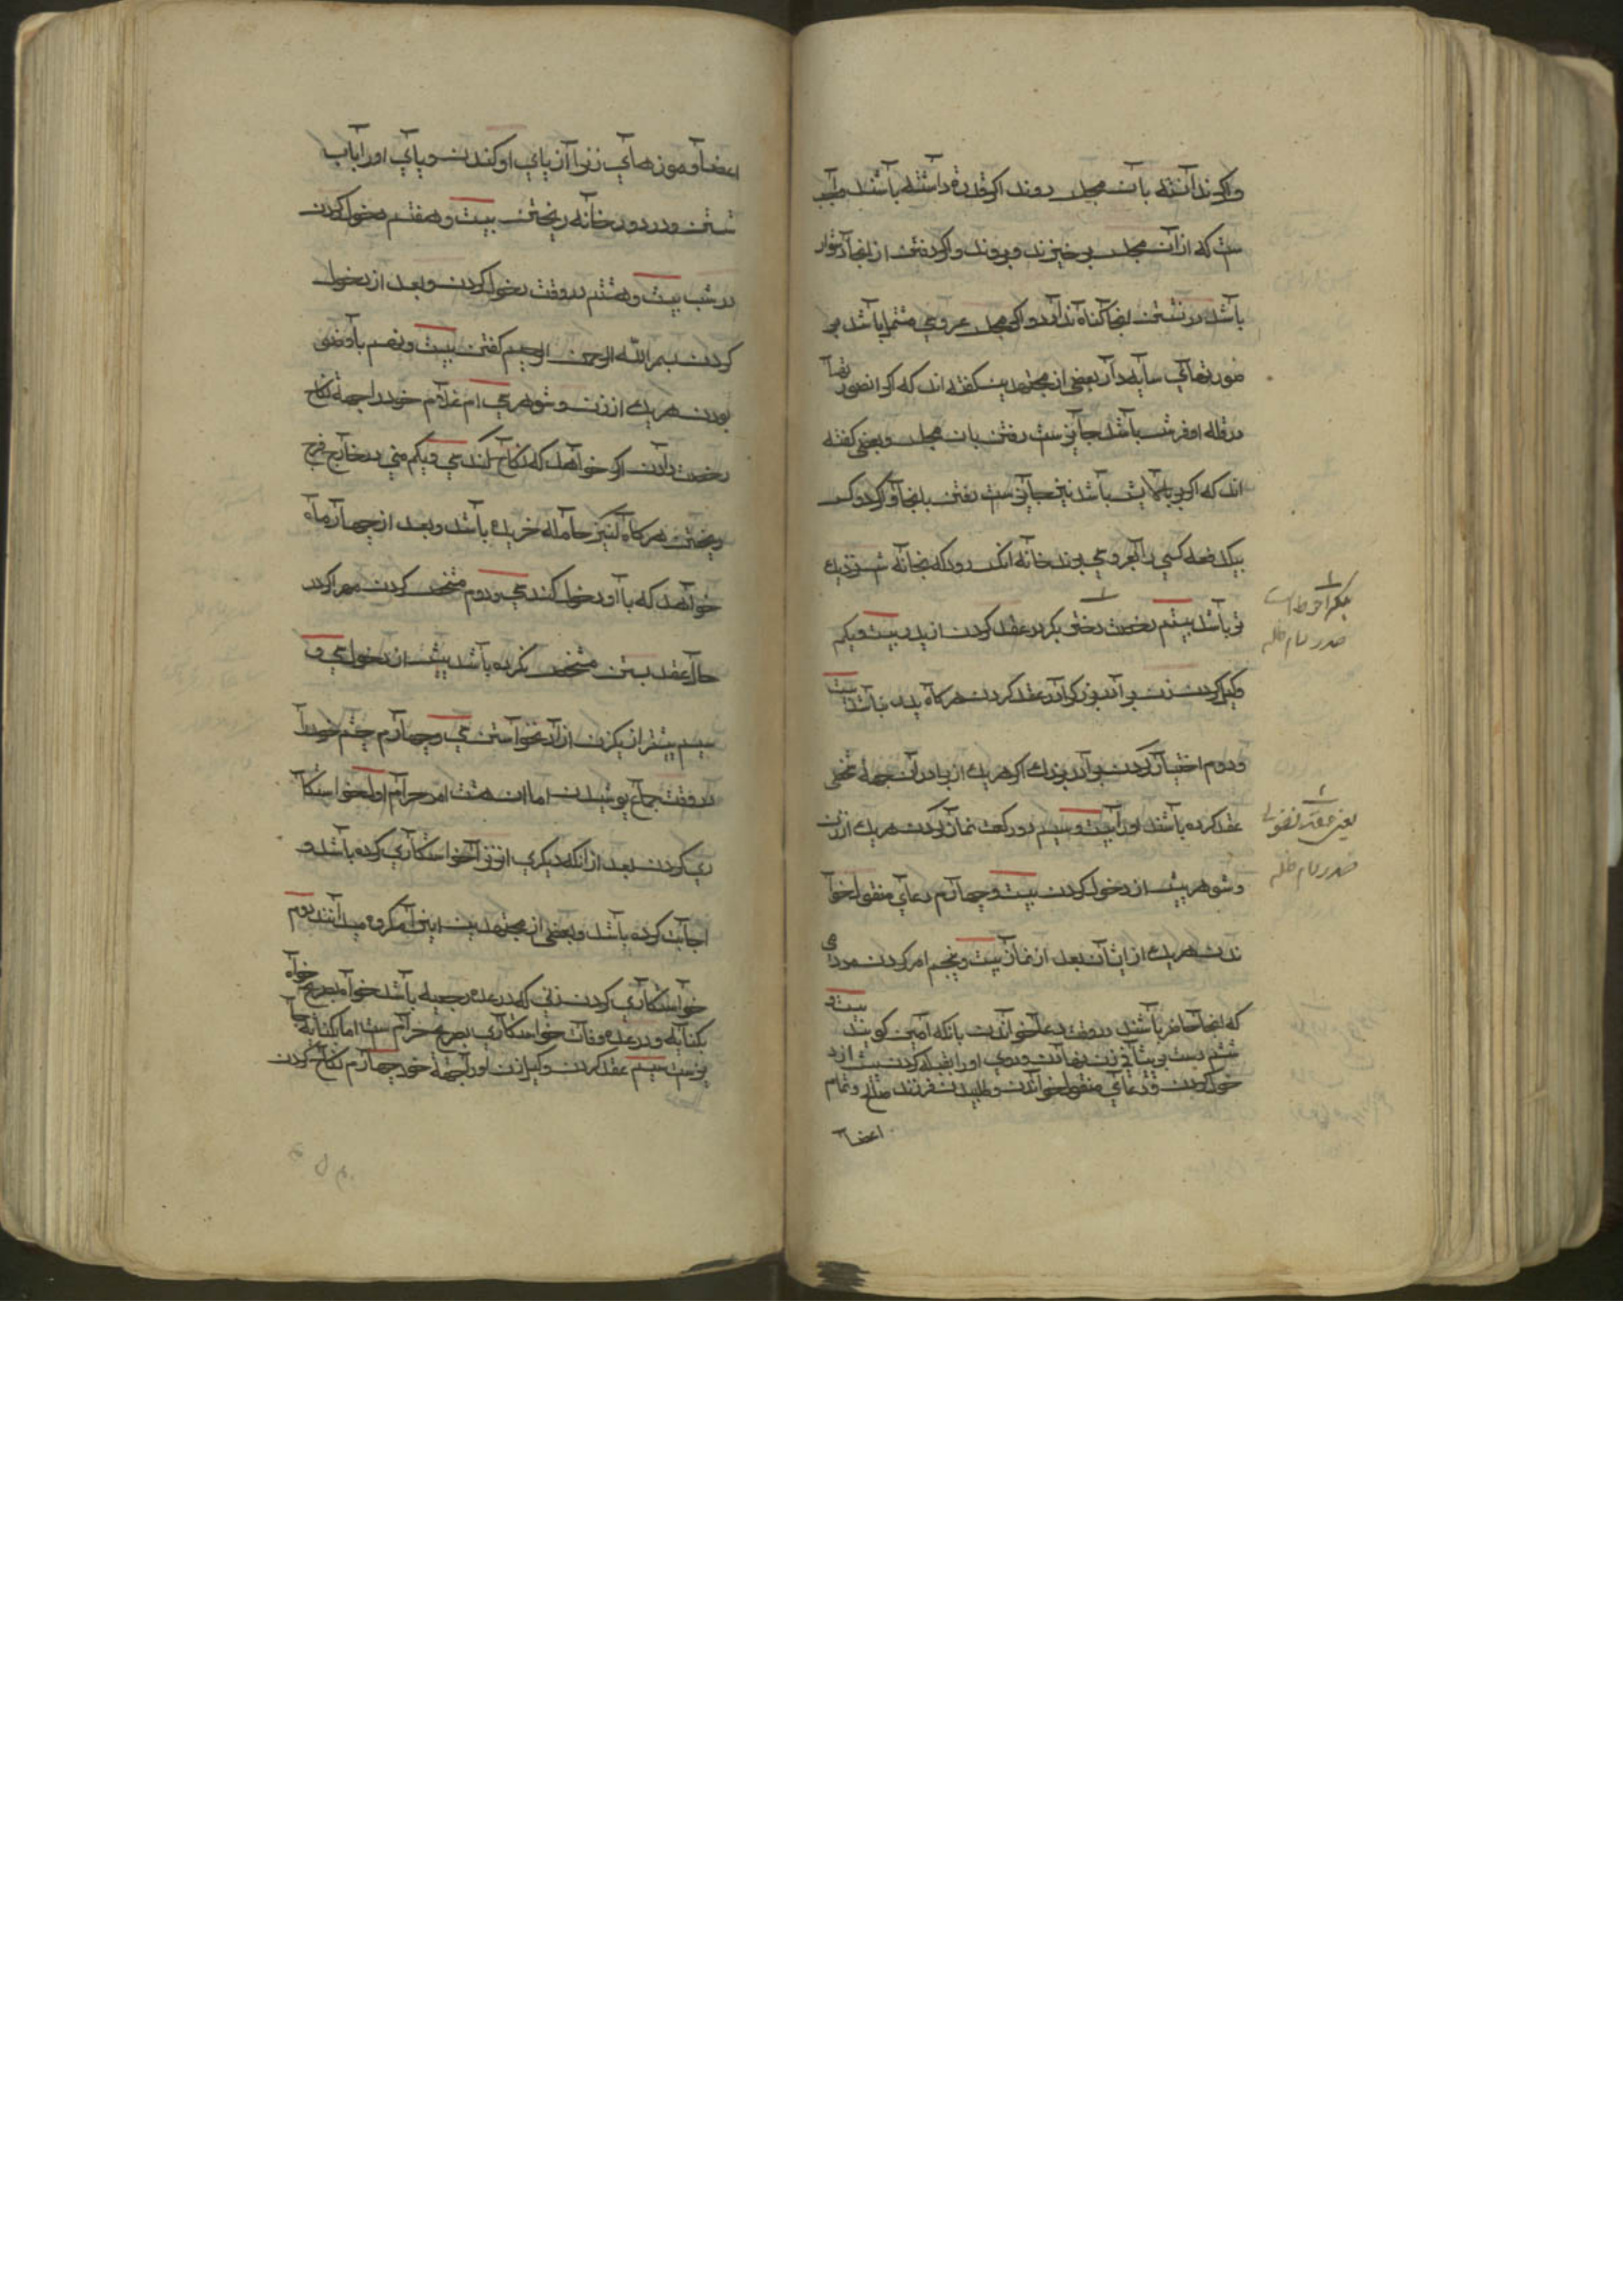 واگر ندانسته بآن مجلس روند اگر قدرة داشته باشند واجب
ست که از آن مجلس برخیزند و بروند و اگر رفتن از انجا دشوار
باشد در نشستن انجا گناه ندارد و اگر مجلس عروسی مشتمل باشد بر
صورتهای سایه دار بعضی از مجتهدین گفته اند که اگر ان صورتها
در پله او فرش باشد جایز ست رفتن بان مجلس و بعضی گفته
اند که اگر بر بالش باشد نیز جایز ست رفتن بانجا و اگر دو کس
بیکدفعه کسی را بعروسی برند خانه انکس رود که بخانه نزدیک
تر باشد بیستم رخصت دختر بکر در عقد کردن از پدر بیست و یکم
وکیل کردن زن برادر بزرگ را در عقد کردن هر گاه پدر نباشد بیست
و دوم اختیار کردن برادر بزرگ اگر هر یک از برادران بجهة شخصی
عقد کرده باشند اورا بیست و سیم دو رکعت نماز کردن هر یک از زن
و شوهر پیش از دخول کردن بیست و چهارم دعای منقول خوا
ندن هر یک از ایشان بعد از نماز بیست و پنجم امر کردن مردمی
که انجا حاضر باشند در وقت دعا خواندن بانکه آمین گویند بیست و
ششم دست بر پیشانی زن نهادن و روی اورا بقبله کردن پیش از د
خول کردن و دعای منقول خواندن و طلبیدن فرزند صالح و تمام
اعضا
بکر احوط است
صدر دام ظله
یعنی عقد فضولی
صدر دام ظله
اعضا و موزهای زنرا از پای او کندن و پای اورا باب
شستن و در دور خانه ریختن بیست و هفتم دخول کردن
در شب بیست و هشتم در وقت دخول کردن و بعد از دخول
کردن بسم الله الرحمن الرحیم گفتن بیست و نهم باوضو
بودن هر یک از زن و شوهر سی ام غلام خود را بجهة نکاح
رخصت دادن اگر خواهد که نکاح کند سی و یکم منی در خارج فرج
ریختن هر گاه کنیز حامله خریده باشد و بعد از چهار ماه
خواهد که با او دخول کند سی و دوم مشخص کردن مهر اگر در
حال عقد بستن مشخص نکرده باشد پیش از دخول سی و
سیم بیشتر از یکزن ازاد نخواستن سی و چهارم چشم خود را
در وقت جماع پوشیدن اما ان هشت امر حرام اول خواستکا
ری کردن بعد از انکه دیگری انزنرا خواستکاری کرده باشد و
اجابت کرده باشد و بعضی از مجتهدین اینرا مکروه میدانند دوم
خواستکاری کردن زنی که در عده رجعیه باشد خواه بصریح خواه
بکنایه و در عده وفات خواستکاری بصریح حرام ست اما بکنایه جا
یز ست سیم عقد کردن وکیل زن اورا بجهة خود چهارم نکاح کردن